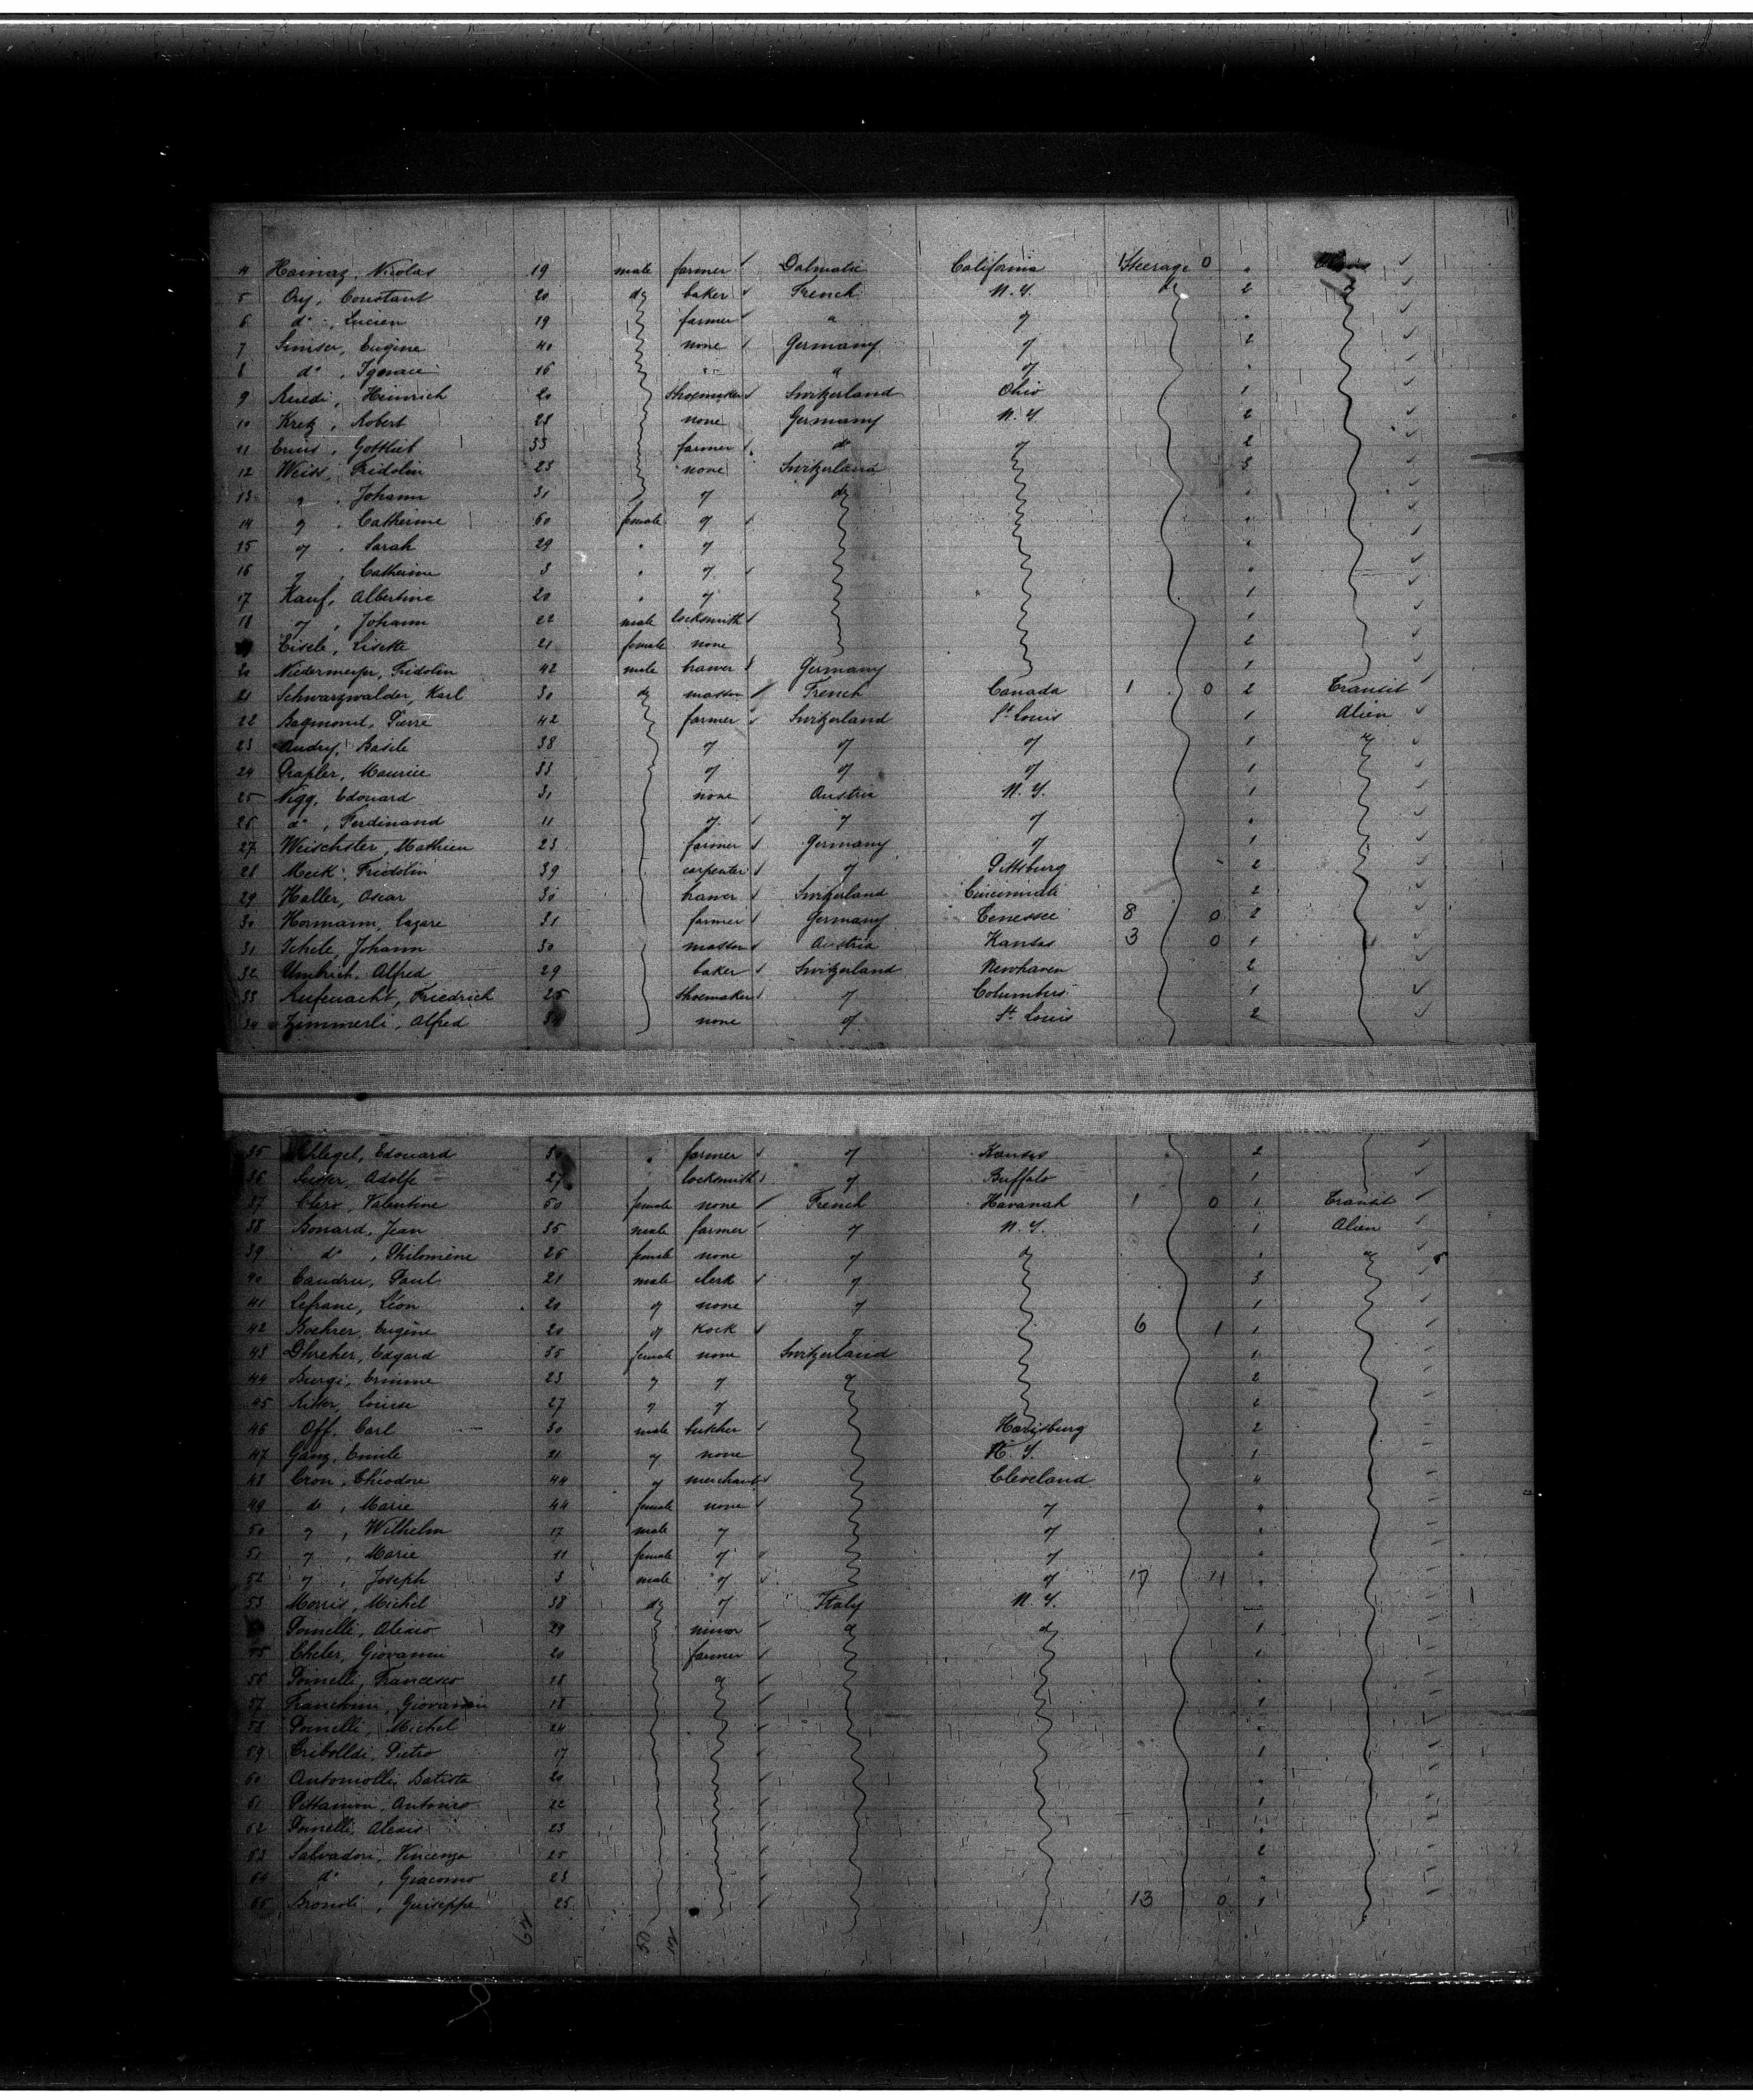 4 Hainaz, Nicolas 19 male farmer Dalmatie California 1 Steerage 0 "
5 Ory, Constant 20 do baker French N.Y. do 2
6 do , Lucien 19 farmer " "
7 Simser, Eugène 40 none Germany " 2
8 do , Ignace 16 " " " "
9 Ruedi, Heinrich 20 shoemaker Switzerland Ohio 1
10 Kretz, Robert 28 none Germany N.Y. 2
11 Gottlieb 33 farmer do " 2
12 Weiss, Fridolin 23 none Switzerland 5
13 " , Johann 31 " do "
14 " , Catherine 60 female " "
15 " , Sarah 29 " " "
16 " , Catherine 3 " " "
17 Kauf, Albertine 20 " " 1
18 " , Johann 22 male locksmith 1
Eisele, Lisette 21 female none 2
20 Niedermeyer, Fridolin 42 male brawer Germany 1
21 Schwarzwalder, Karl 30 do masson French Canada 1 0 2 Transit
22 Bagmond, Pierre 42 farmer Switzerland St. Louis 1 Alien
23 Andry, Basile 38 " " " 1 "
24 Maurice 33 " " " 1
25 Nigg, Edouard 31 none Austria N.Y. 1
26 do , Ferdinand 11 " " " "
27 Weischster, Mathieu 23 farmer Germany " 1
28 Meck, Fridolin 39 carpenter " Pittsburg 2
29 Haller, Oscar 30 brawer Switzerland Cincinnati 2
30 Hormann, Lazare 31 farmer Germany Tenessee 8 0 2
31 Johann 30 masson Austria Kansas 3 0 1
32 Umbrich, Alfred 29 baker Switzerland Newhaven 2
33 Rufenacht, Friedrich 25 shoemaker " Columbus 1
34 Zimmerli, Alfred none " St. Louis 2
35 Schlegel, Edouard " farmer " Kansas 2
36 Suter, Adolfe 27 locksmith " Buffalo 1
37 Clerc, Valentine 50 female none French Havanah 1 0 1 Transit
38 Bonard, Jean 35 male farmer " N.Y. 1 Alien
39 do , Philomène 26 female none " do " "
40 Caudru, Paul 21 male clerk " 3
41 Lefranc, Léon 20 " none " 1
42 Boehrer, Eugène 20 " Kock " 6 1 1
43 Dhreher, Edgard 35 female none Switzerland 1
44 Burgi, Emma 23 " " " 2
45 Ritter, Louise 27 " " 2
46 Off, Carl 30 male butcher Harrisburg 2
47 Ganz, Emile 21 " none N.Y. 1
48 Cron, Théodore 44 " merchant Cleveland 4
49 do , Marie 44 female none " "
50 " , Wilhelm 17 male " " "
51 " , Marie 11 female " " "
52 " , Joseph 3 male " " 17 11 "
53 Morris, Michel 38 do " Italy N.Y.
Pomelli, Alexio 29 minor do do 1
55 Cheler, Giovanni 20 farmer 1
56 Pomelli, Francesco 28 do "
57 Franchini, Giovanni 18 1
58 Pomelli, Michel 24 "
59 Criboldi, Pietro 17 1
60 Antoniolli, Batista 20 "
61 Pittamin, Antonio 22 1
62 Pomelli, Alexis 23 "
63 Salvadori, Vincenzo 25 2
64 do , Giacomo 23 "
65 Bronoli, Guiseppe 25 13 0 1
62 50 12